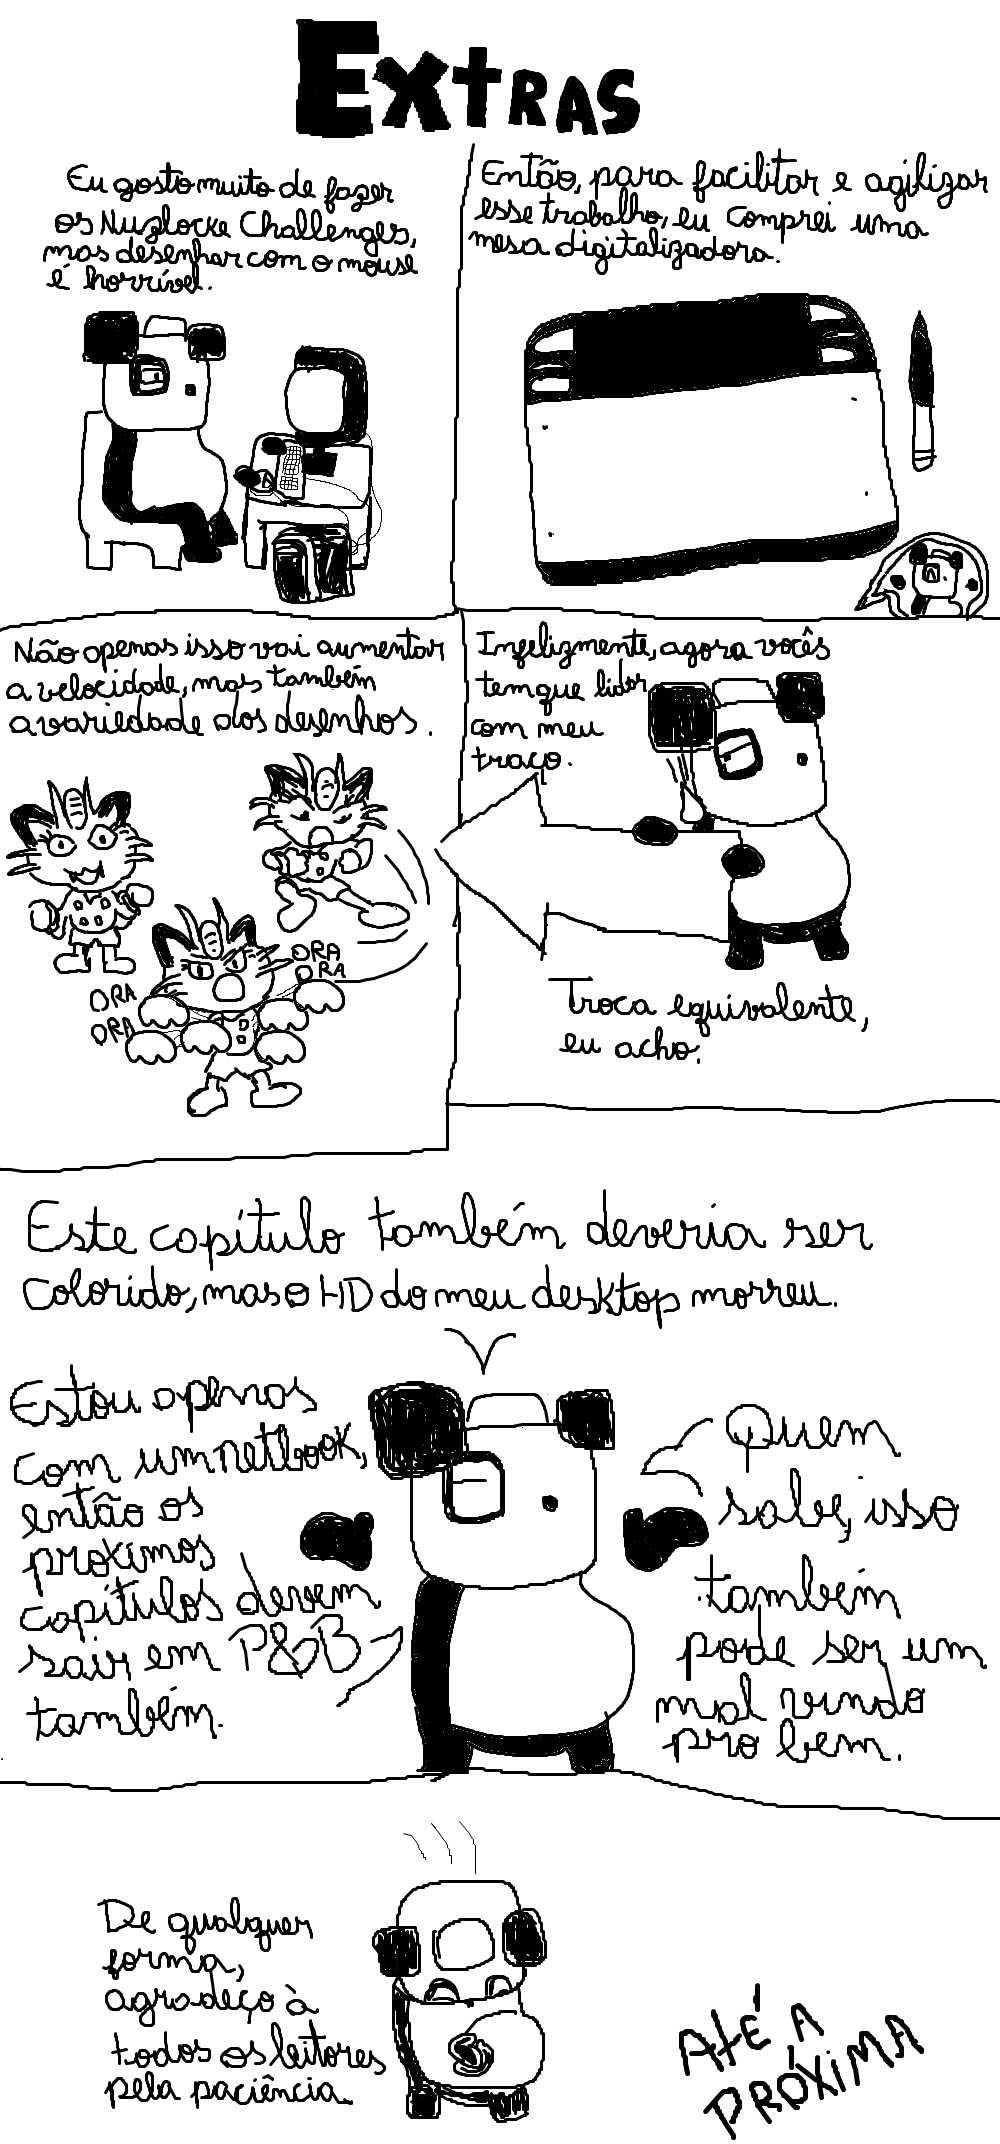 Extras
Eu gosto muito de fazer
os Nuzlocke Challenges,
mas desenhar com o mouse
é horrível.
Então, para facilitar e agilizar
esse trabalho, eu comprei uma
mesa digitalizadora.
Não apenas isso vai aumentar
a velocidade, mas também
a variedade dos desenhos.
ORA
ORA
ORA
ORA
Infelizmente, agora vocês
tem que lidar
com meu
traço.
Troca equivalente,
eu acho.
Este capítulo também deveria ser
colorido, mas o HD do meu desktop morreu.
Estou apenas
com um netbook,
então os
próximos
capítulos devem
sair em P&B
também.
Quem
sabe, isso
também
pode ser um
mal vindo
pro bem.
De qualquer
forma,
agradeço à
todos os leitores
pela paciência.
ATÉ A
PRÓXIMA